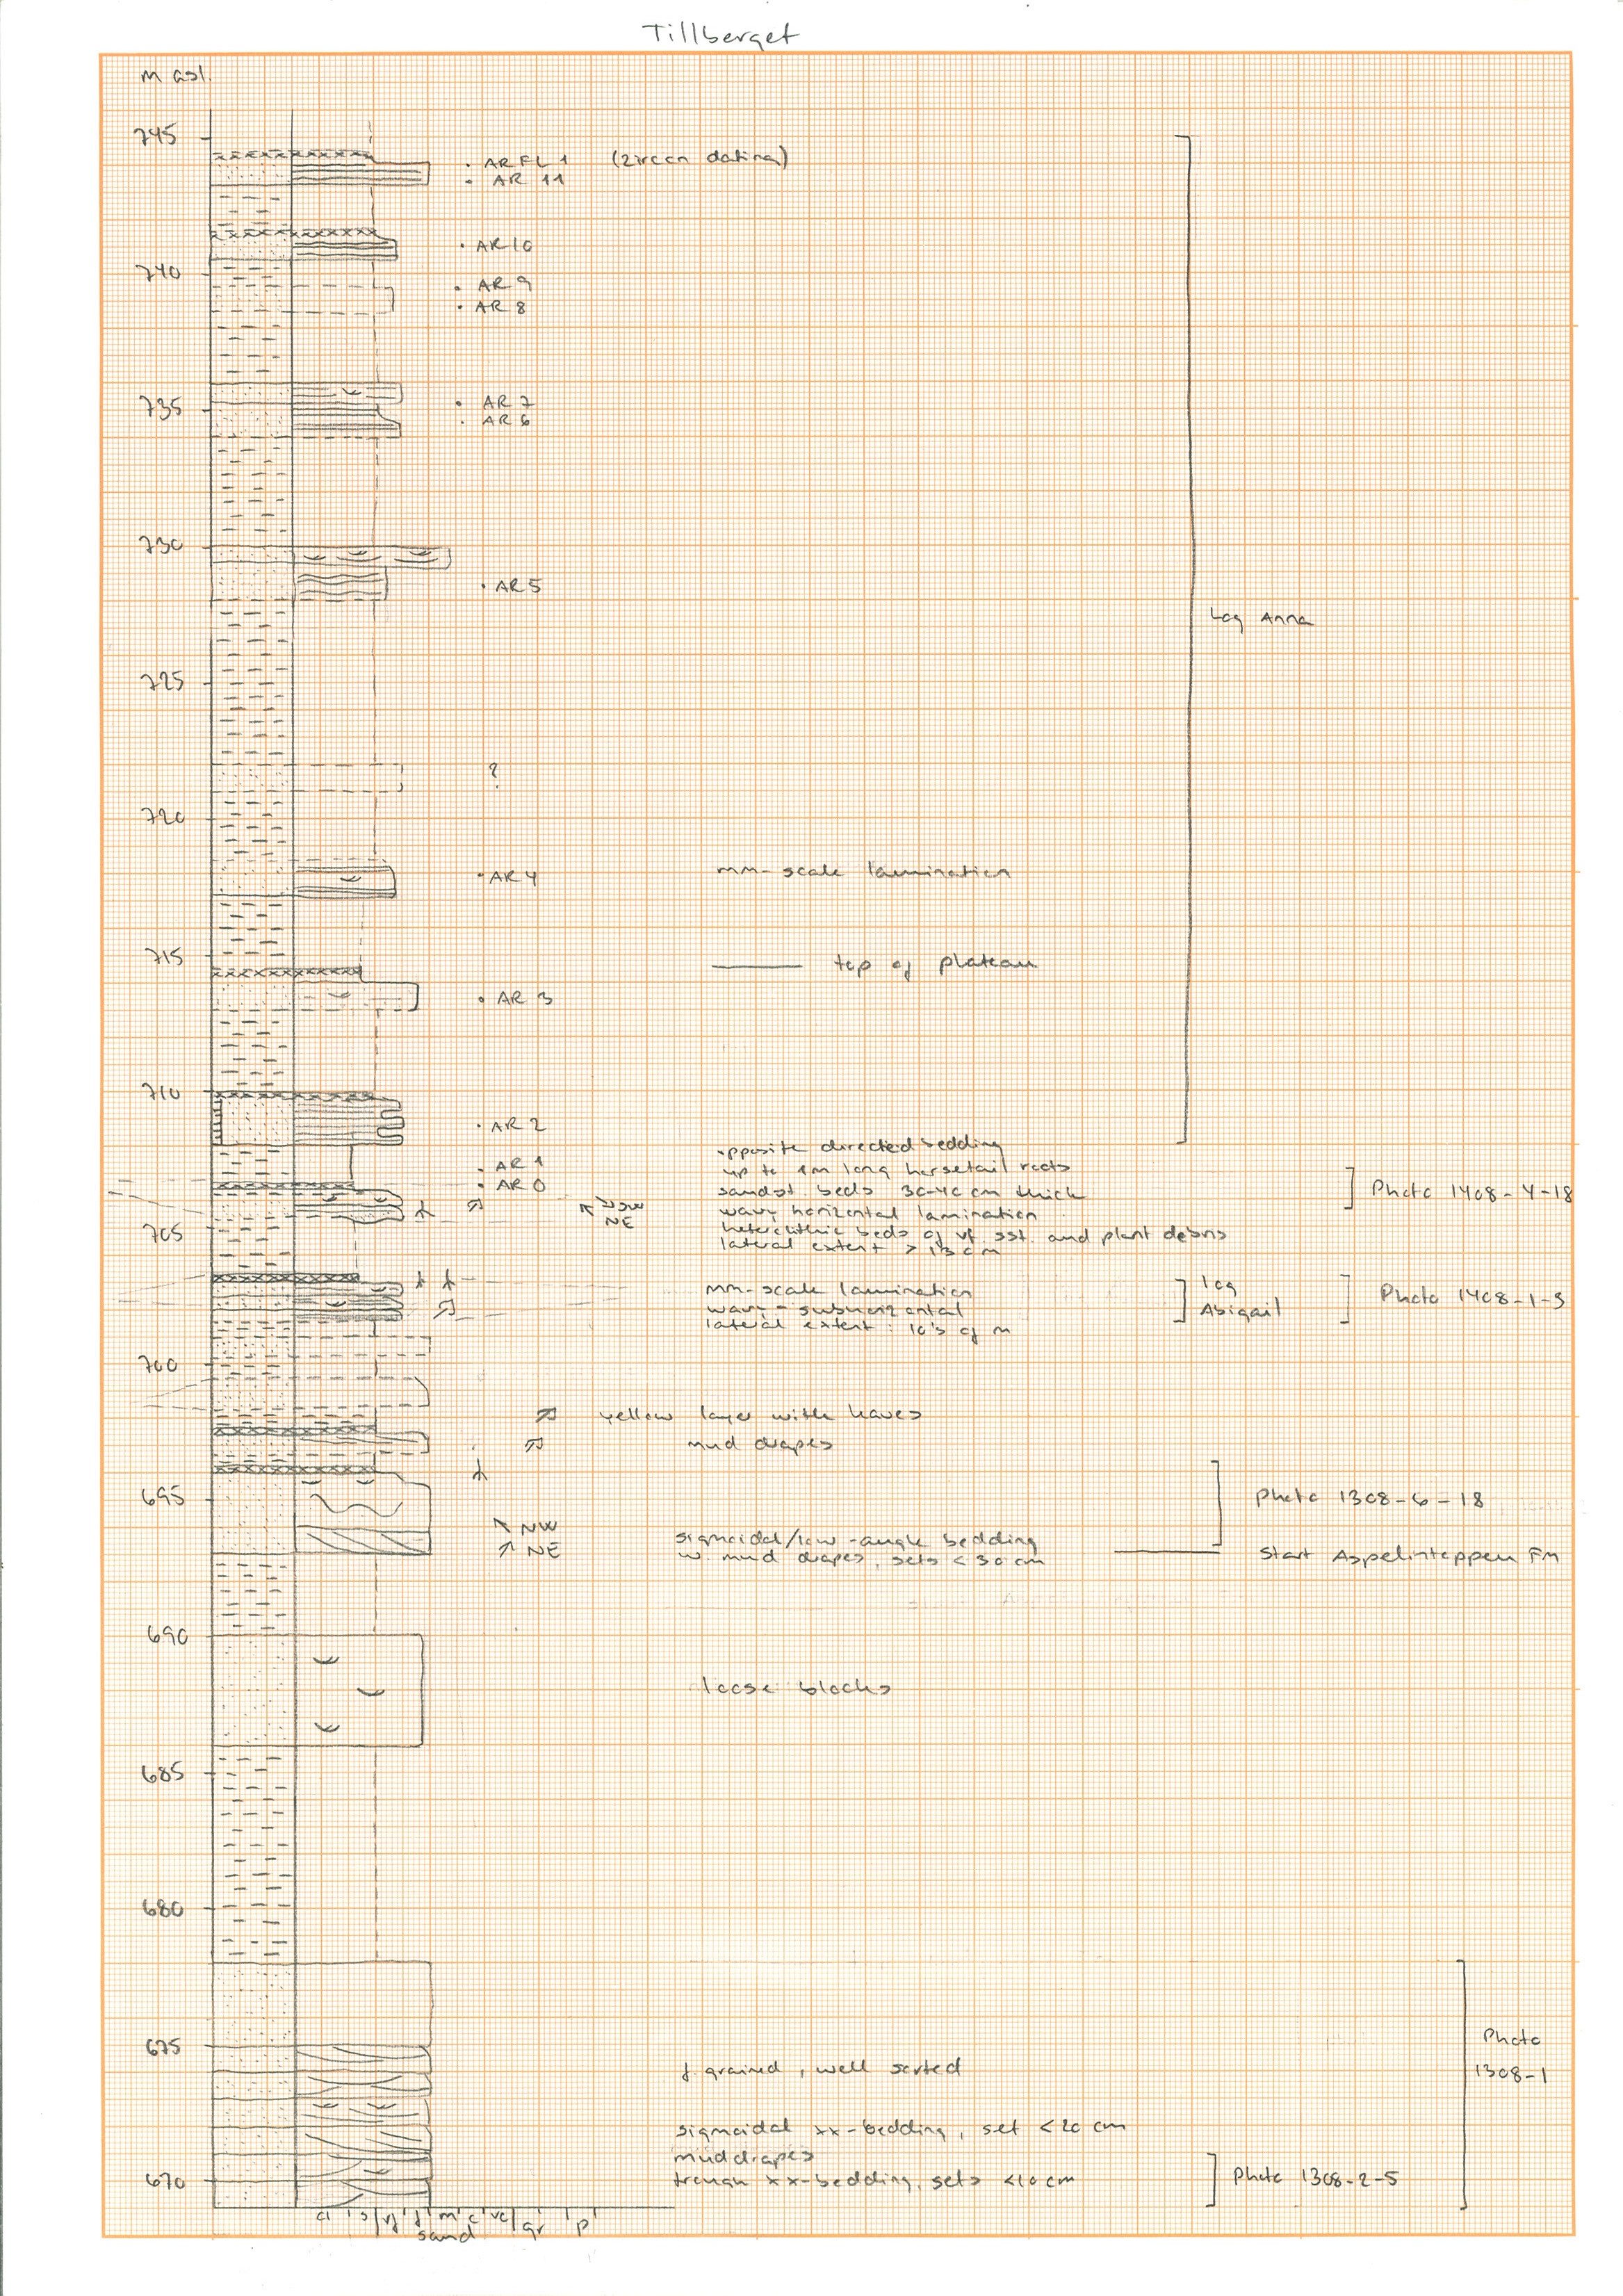 Tillberget
m asl.
745
• ARFL 1 (zircon dating)
• AR 11
• AR 10
740
• AR 9
• AR 8
735
• AR 7
• AR 6
730
• AR 5
Log Anna
725
?
720
• AR 4
mm-scale lamination
715
top of plateau
• AR 3
710
• AR 2
opposite directed bedding
• AR 1
up to 1m long horsetail roots
• AR 0
sandst. beds 30-40 cm thick
Photo 1408-4-18
SW
NE
wavy horizontal lamination
705
heterolithic beds of vf. sst. and plant debris
lateral extent >
mm-scale lamination
log
Abigail
Photo 1408-1-3
wavy - subhorizontal
lateral extent: 10's of m
700
yellow layer with leaves
mud drapes
695
Photo 1308-6-18
NW
NE
sigmoidal/low-angle bedding
w. mud drapes, sets < 30 cm
Start Aspelintoppen FM
690
loose blocks
685
680
675
Photo
1308-1
f. grained, well sorted
sigmoidal xx-bedding, set < 20 cm
mud drapes
670
trough xx-bedding, sets <10 cm
Photo 1308-2-5
cl s vf f m c vc gr p
sand